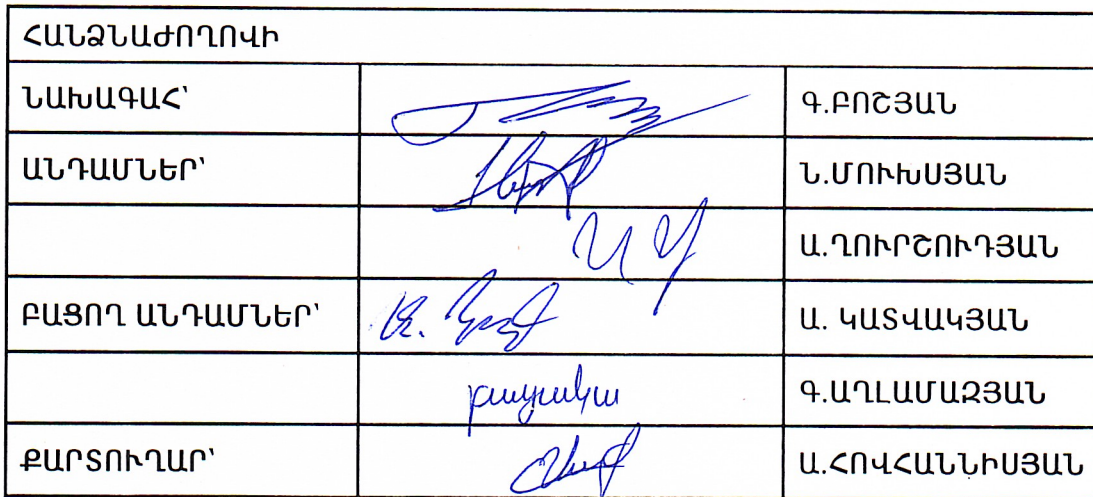 ՀԱՆՁՆԱԺՈՂՈՎԻ
ՆԱԽԱԳԱՀ՝ Գ.ԲՈՇՅԱՆ
ԱՆԴԱՄՆԵՐ՝ Ն.ՄՈՒԽՍՅԱՆ
Ա.ՂՈՒՐՇՈՒԴՅԱՆ
ԲԱՑՈՂ ԱՆԴԱՄՆԵՐ՝ Ա. ԿԱՏՎԱԿՅԱՆ
բացակա Գ.ԱՂԼԱՄԱԶՅԱՆ
ՔԱՐՏՈՒՂԱՐ՝ Ա.ՀՈՎՀԱՆՆԻՍՅԱՆ